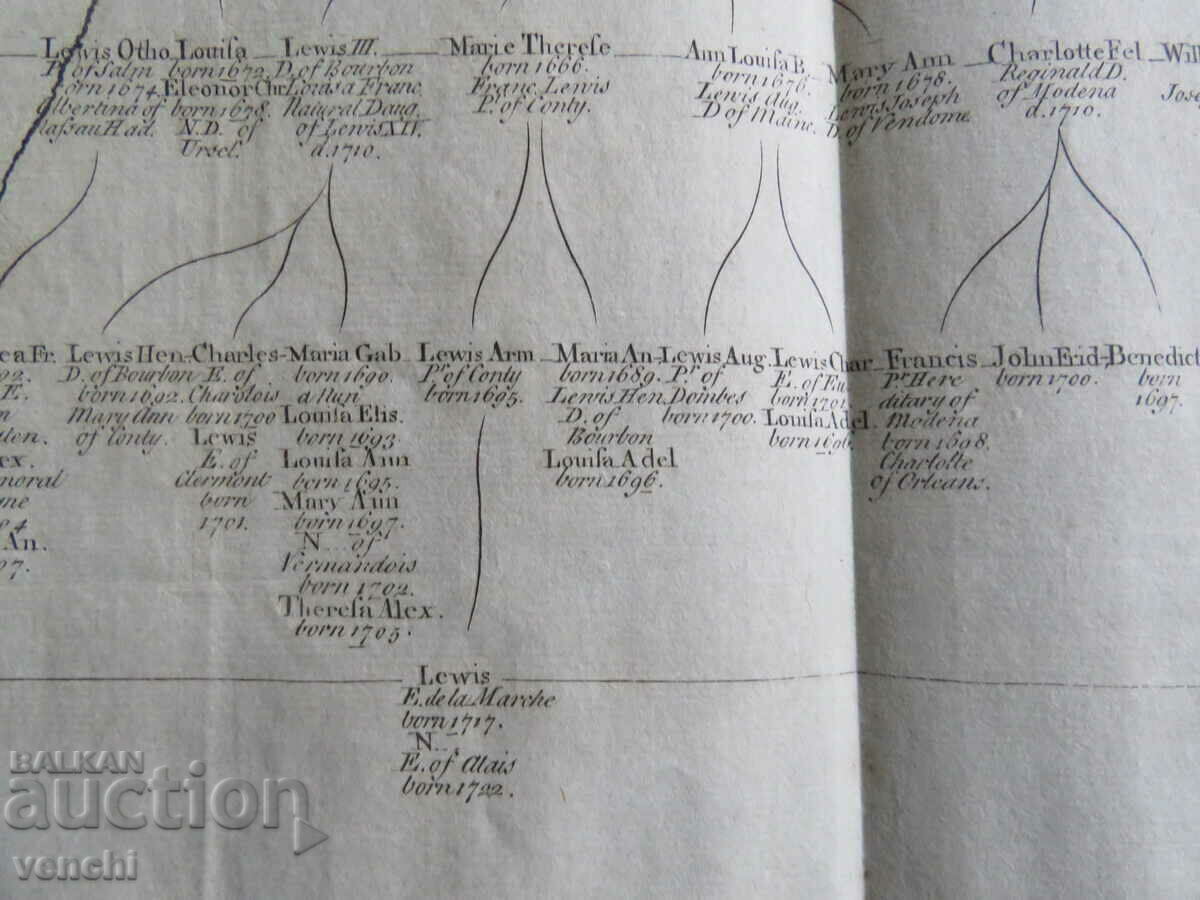 Lewis Otho
P. of Salm
born 1674.
Albertina of
Nassau Had.
Louisa
born 1672.
Eleonor Chr.
born 1678.
N. D. of
Ursel.
Lewis III.
D. of Bourbon
Louisa Franc
Natural Daug.
of Lewis XIV.
d. 1710.
Marie Therese
born 1666.
Franc. Lewis
Pr. of Conty.
Ann Louisa B.
born 1676.
Lewis Aug.
D of Maine.
Mary Ann
born 1678.
Lewis Joseph
D. of Vendome.
Charlotte Fel
Reginald D.
of Modena
d. 1710.
Will
Jose
ea Fr.
92.
E.
n
len.
ex.
moral
me
84
An.
97.
Lewis Hen-
D. of Bourbon
born 1692.
Mary Ann
of Conty.
Charles-
E. of
Charolois
born 1700
Lewis
E. of
Clermont
born
1701.
Maria Gab
born 1690.
a Nun
Louisa Elis.
born 1693.
Louisa Ann
born 1695.
Mary Ann
born 1697.
N... of
Vermandois
born 1702.
Theresa Alex.
born 1705.
Lewis Arm
Pr. of Conty
born 1695.
Maria An-
born 1689.
Lewis Hen.
D. of
Bourbon
Louisa Adel
born 1696.
Lewis Aug.
Pr. of
Dombes
born 1700.
Lewis Char
E. of Eu
born 1701.
Louisa Adel.
born 1696
Francis
Pr. Here
ditary of
Modena
born 1698.
Charlotte
of Orleans.
John Frid-
born 1700.
Benedict
born
1697.
Lewis
E. de la Marche
born 1717.
N...
E. of Alais
born 1722.
BALKAN
auction
venchi